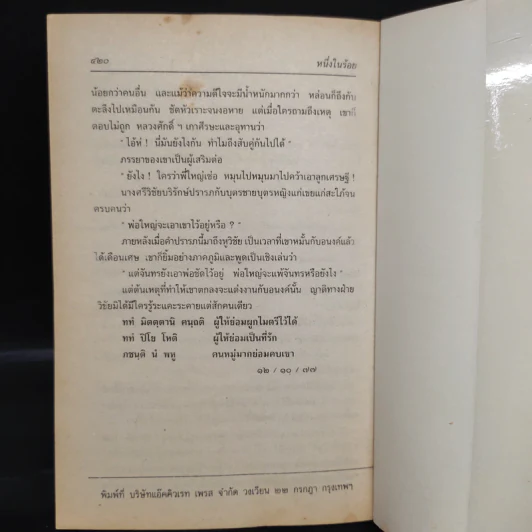 ๔๒๐ หนึ่งในร้อย
น้อยกว่าคนอื่น และแม้ว่าความดีใจจะมีน้ำหนักมากกว่า หล่อนก็ถึงกับ
ตะลึงไปเหมือนกัน ขัดหัวเราะจนงอหาย แต่เมื่อใครถามถึงเหตุ เขาก็
ตอบไม่ถูก หลวงศักดิ์ ฯ เกาศีรษะและอุทานว่า
" ไอ้ห่า ! นี่มันยังไงกัน ทำไมถึงสับคู่กันไปได้ "
ภรรยาของเขาเป็นผู้เสริมต่อ
" ยังไง ! ใครว่าพี่ใหญ่เซ่อ หมุนไปหมุนมาไปคว้าเอาลูกเศรษฐี !
นางศรีวิชัยบริรักษ์ปรารภกับบุตรชายบุตรหญิงแก่เขยแก่สะใภ้จน
ครบคนว่า
" พ่อใหญ่จะเอาเขาไว้อยู่หรือ ? "
ภายหลังเมื่อคำปรารภนี้มาถึงหูวิชัย เป็นเวลาที่เขาหมั้นกับอนงค์แล้ว
ได้เดือนเศษ เขาก็ยิ้มอย่างภาคภูมิและพูดเป็นเชิงเล่นว่า
" แต่จันทรยังเอาพ่อขัดไว้อยู่ พ่อใหญ่จะแพ้จันทรหรือยังไง "
แต่ต้นเหตุที่ทำให้เขาตกลงจะแต่งงานกับอนงค์นั้น ญาติทางฝ่าย
วิชัยมิได้มีใครรู้ระแคะระคายแต่สักคนเดียว
ททํ มิตตฺตานิ คนฺถติ ผู้ให้ย่อมผูกไมตรีไว้ได้
ททํ ปิโย โหติ ผู้ให้ย่อมเป็นที่รัก
ภชนฺติ นํ พหู คนหมู่มากย่อมคบเขา
๑๒ / ๑๑ / ๗๗
พิมพ์ที่ บริษัทแอ๊คคิวเรท เพรส จำกัด วงเวียน ๒๒ กรกฎา กรุงเทพฯ